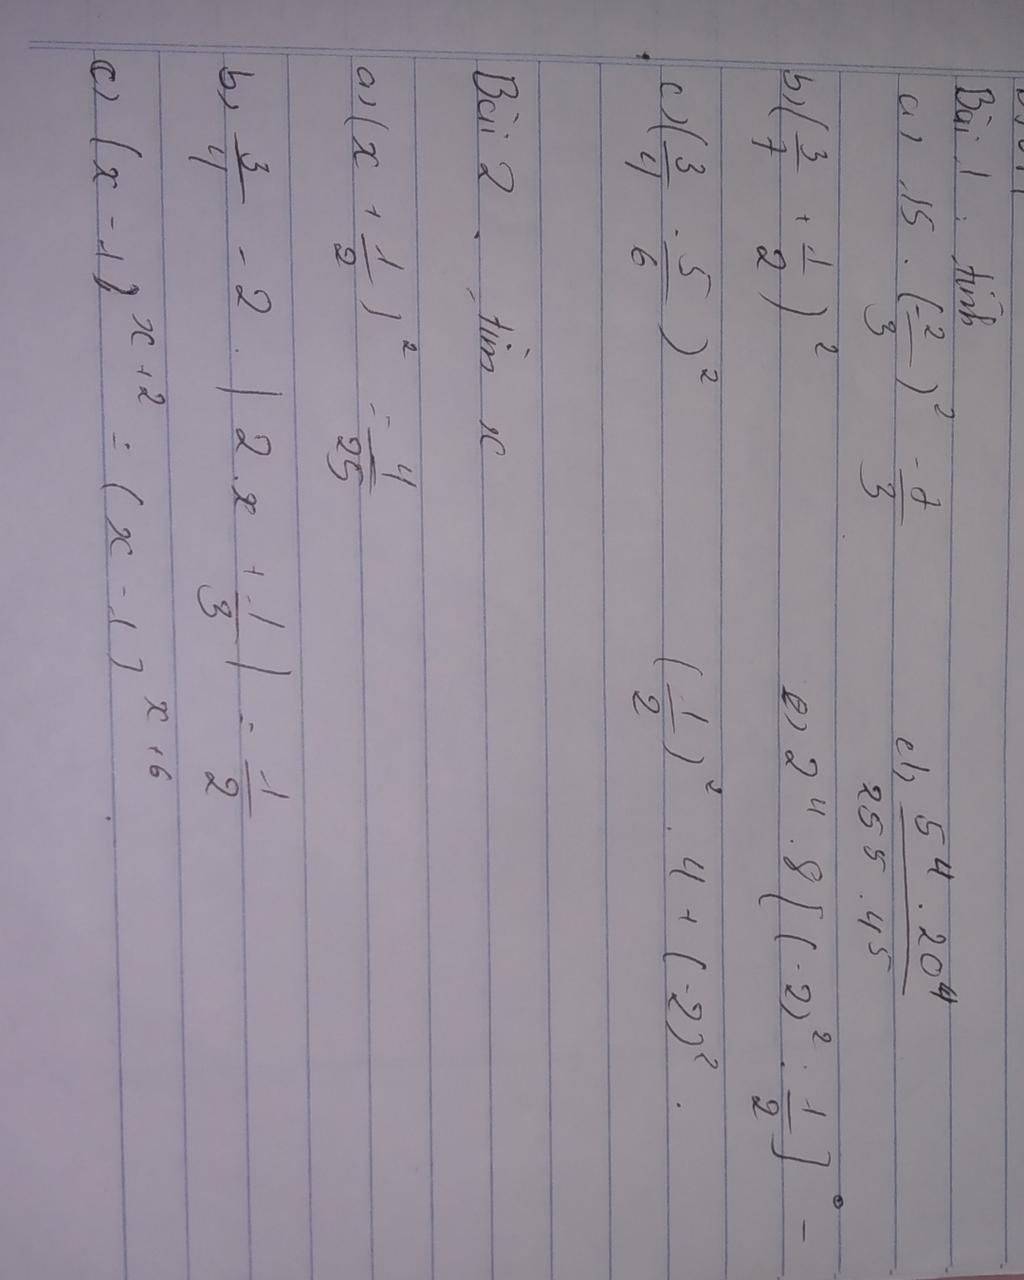 Bài 1 : tính
a) 15 . (-2/3)² - 7/3
d) 5⁴ . 20⁴ / 25⁵ . 4⁵
b) (3/7 + 1/2)²
e) 2⁴ . 8 [(-2)² : 1/2]⁰ -
c) (3/4 . 5/6)²
(1/2)² . 4 + (-2)² .
Bài 2 . tìm x
a) (x + 1/2)² = 4/25
b) 3/4 - 2 . | 2x + 1/3 | = 1/2
c) (x - 1)ˣ⁺² = (x - 1)ˣ⁺⁶